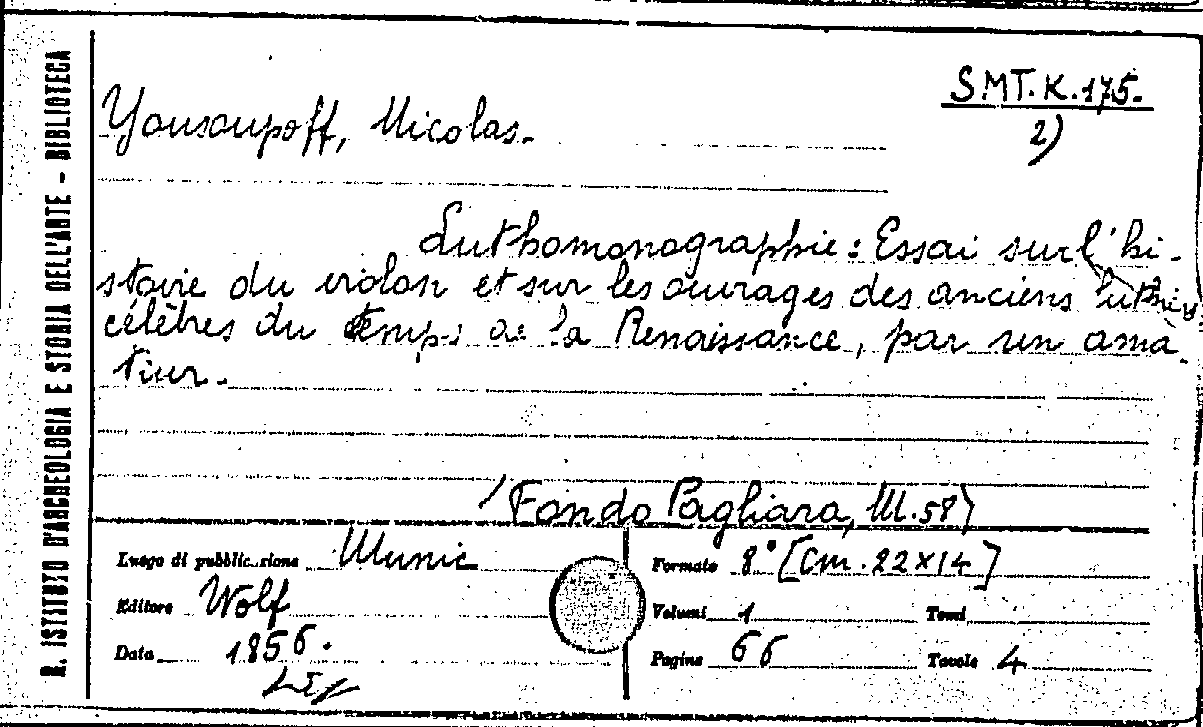 R. ISTITUTO D'ARCHEOLOGIA E STORIA DELL'ARTE - BIBLIOTECA
S.MT.K.175.
2)
Yousoupoff, Nicolas.
Luthomonographie: Essai sur l'hi-
stoire du violon et sur les ouvrages des anciens luthiers
célèbres du temps de la Renaissance, par un ama-
teur.
(Fondo Pagliara, M.58)
Luogo di pubblicazione Munic
Formato 8° [Cm. 22x14]
Editore Wolf
Volumi 1 Tomi
Data 1856.
Pagine 66 Tavole 4